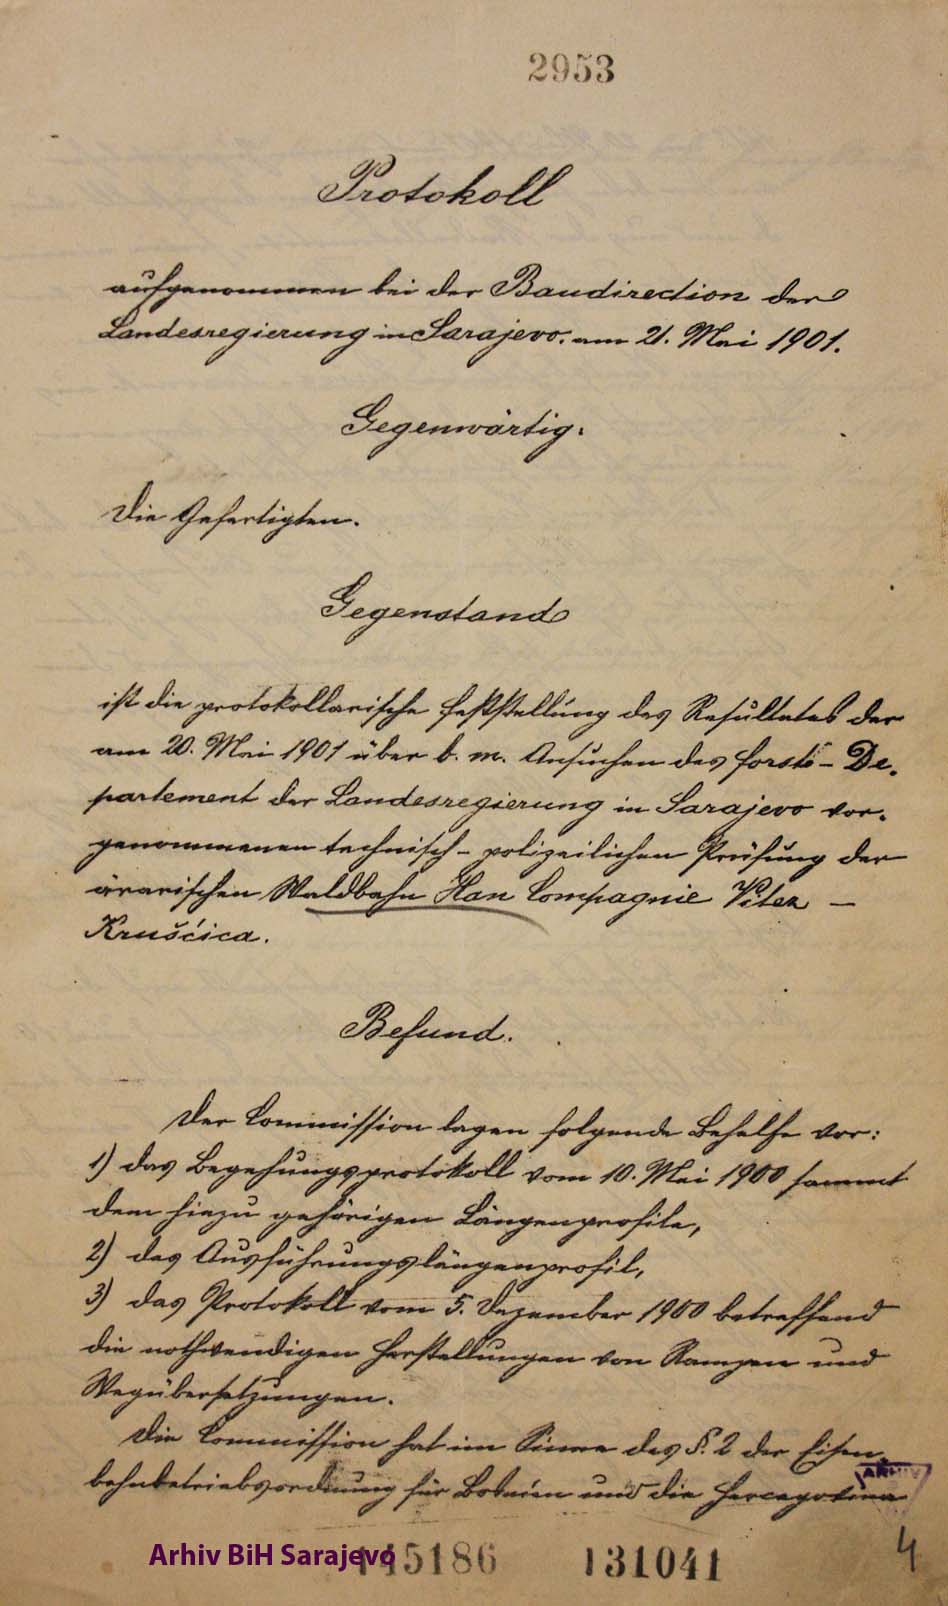 2953
Protokoll
aufgenommen bei der Baudirection der
Landesregierung in Sarajevo. am 21. Mai 1901.
Gegenwärtig.
Die Gefertigten.
Gegenstand
ist die protokollarische Feststellung des Resultates der
am 20. Mai 1901 über b. m. Ansuchen des Forst-De-
partement der Landesregierung in Sarajevo vor-
genommenen technisch-polizeilichen Prüfung der
ärarischen Waldbahn Han Compagnie Vitez –
Kruščica.
Befund.
Der Commission lagen folgende Behelfe vor:
1) das Begehungsprotokoll vom 10. Mai 1900 sammt
dem hiezu gehörigen Längenprofile,
2) das Ausführungslängenprofil,
3) das Protokoll vom 5. Dezember 1900 betreffend
die nothwendigen Herstellungen von Rampen und
Wegübersetzungen.
Die Commission hat im Sinne des §. 2 der Eisen-
bahnbetriebsordnung für Bosnien und die Hercegovina
ARHIV
4
Arhiv BiH Sarajevo
145186 131041